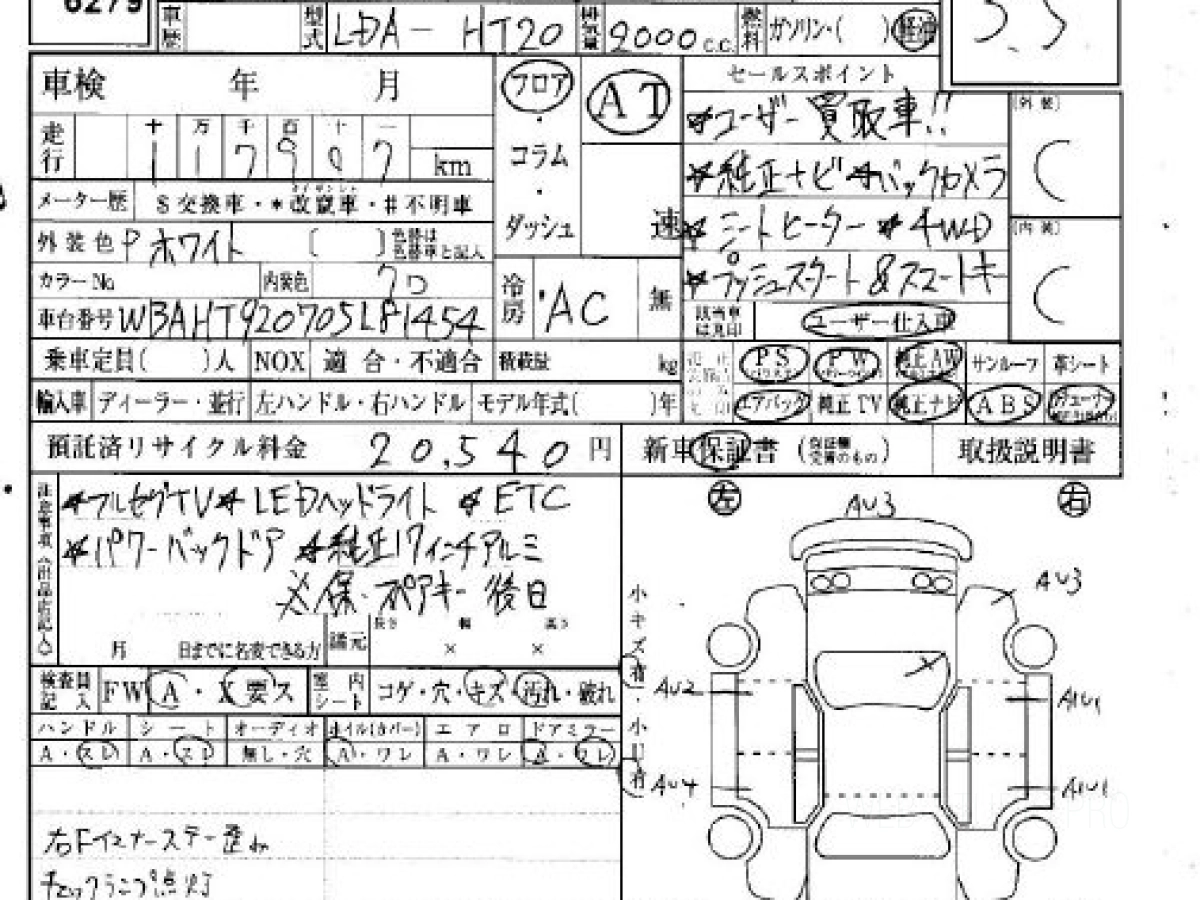 6279
車歴 型式 LDA-HT20 排気量 2000 C.C. 燃料 ガソリン・( ) 軽油
車検 年 月 フロア AT セールスポイント
*ユーザー買取車!! [外装] C
走行 十 万 千 百 十 一
km コラム
*純正ナビ*バックカメラ
メーター歴 $交換車・*改竄車・#不明車
ダッシュ 速 *シートヒーター *4WD [内装] C
外装色 Pホワイト ( ) 色替は色替車と記入
*プッシュスタート&スマートキー
カラーNo 内装色 クロ 冷房 AC 無
車台番号 WBAHT920705L81454 該当車は○印 ユーザー仕入車
乗車定員( )人 NOX 適合・不適合 積載量 kg PS PW 純正AW サンルーフ 革シート
輸入車 ディーラー・並行 左ハンドル・右ハンドル モデル年式( )年 エアバック 純正TV 純正ナビ ABS
預託済リサイクル料金 20,540 円 新車保証書 (保証継交渉のもの) 取扱説明書
*フルセグTV*LEDヘッドライト *ETC
*パワーバックドア *純正17インチアルミ
※保・スペアキー後日
月 日までに名変できる方 諸元 長さ × 幅 × 高さ
検査員記入 FW A・X要ス 室内シート コゲ・穴・キズ・汚れ・破れ
ハンドル シート オーディオ ホイル(カバー) エアロ ドアミラー
A・スレ A・スレ 無し・穴 A・ワレ A・ワレ A・スレ
右Fインナーステー歪み
チェックランプ点灯
左 AU3 右
AU3
小キズ有・小U有
AU2 AU1
AU4 AU1